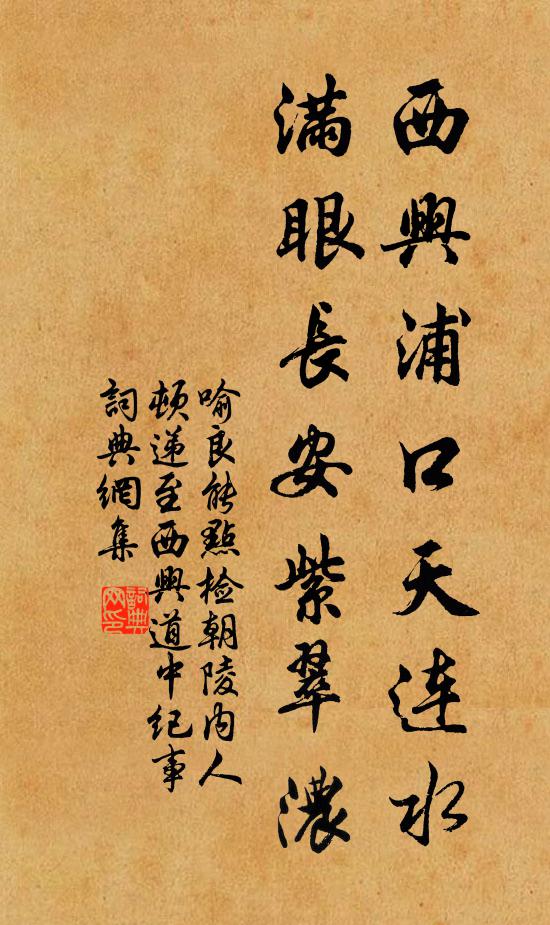 西興浦口天連水
滿眼長安紫翠濃
喻良能點检朝陵内人
頓递至西興道中纪事
詞典網集
詞典網印